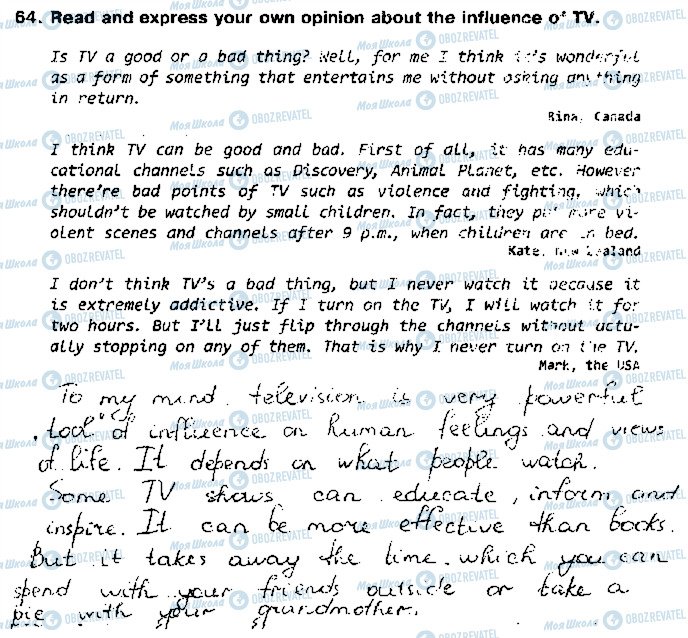 64. Read and express your own opinion about the influence of TV.
Is TV a good or a bad thing? Well, for me I think it's wonderful
as a form of something that entertains me without asking anything
in return.
Rina, Canada
I think TV can be good and bad. First of all, it has many edu-
cational channels such as Discovery, Animal Planet, etc. However
there're bad points of TV such as violence and fighting, which
shouldn't be watched by small children. In fact, they put more vi-
olent scenes and channels after 9 p.m., when children are in bed.
Kate, New Zealand
I don't think TV's a bad thing, but I never watch it because it
is extremely addictive. If I turn on the TV, I will watch it for
two hours. But I'll just flip through the channels without actu-
ally stopping on any of them. That is why I never turn on the TV.
Mark, the USA
To my mind television is very powerful
"tool" of influence on human feelings and views
of life. It depends on what people watch.
Some TV shows can educate, inform and
inspire. It can be more effective than books.
But it takes away the time which you can
spend with your friends outside or take a
pie with your grandmother.